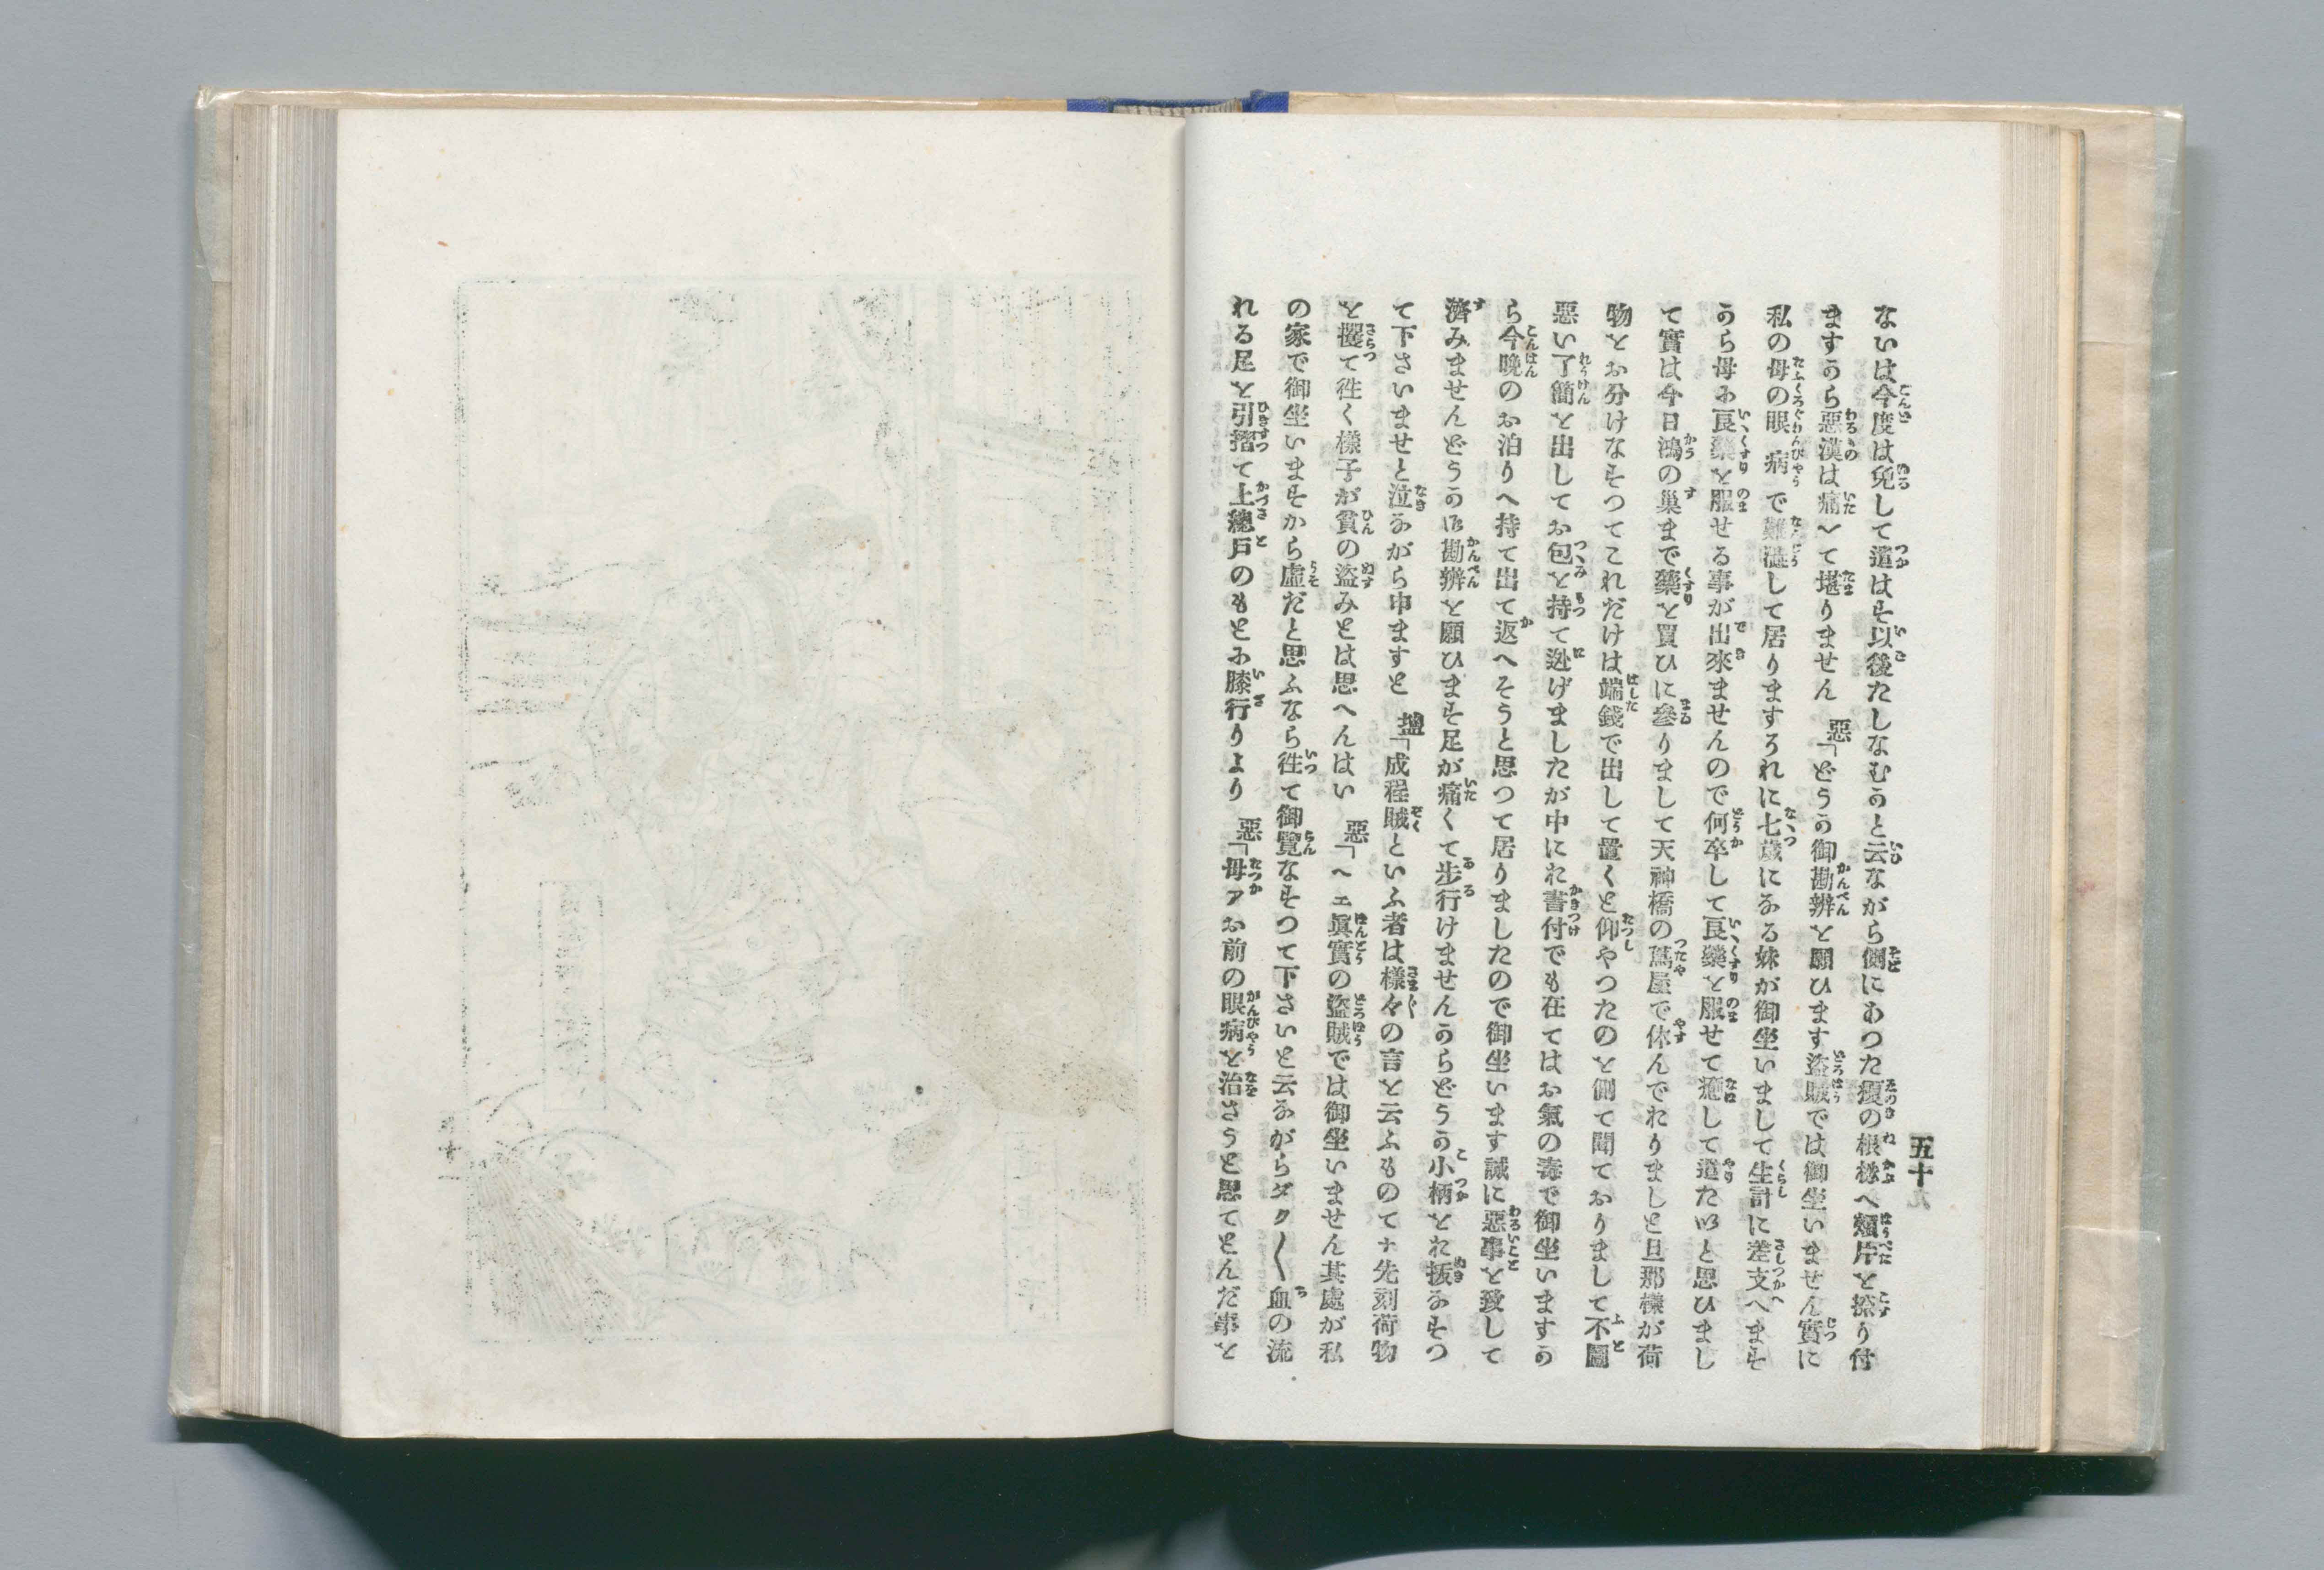 五十九
ないは今度は免して遣はそ以後たしなむかと云ながら側にあつた榎の根株へ頬片を擦り付
ますから惡漢は痛〜て堪りません 惡「どうか御勘辨を願ひます盜賊では御坐いません實に
私の母の眼病で難澁して居りますそれに七歳になる妹が御坐いまして生計に差支へまそ
から母に良藥を服せる事が出來ませんので何卒して良藥を服せて癒して遣たいと思ひまし
て實は今日鴻の巣まで藥を買ひに參りまして天神橋の蔦屋で休んでれりましと旦那樣が荷
物をお分けなそつてこれだけは端錢で出して置くと仰やつたのを側て聞ておりまして不圖
惡い了簡を出してお包を持て迯げましたが中にれ書付でも在てはお氣の毒で御坐いますか
ら今晩のお泊りへ持て出て返へそうと思つて居りましたので御坐います誠に惡事を致して
濟みませんどうかに勘辨を願ひまそ足が痛くて步行けませんからどうか小柄をれ拔なそつ
て下さいませと泣ながら申ますと 鹽「成程賊といふ者は樣々の言を云ふものてナ先刻荷物
を攫て徃く樣子が貧の盜みとは思へんはい 惡「ヘェ眞實の盜賊では御坐いません其處が私
の家で御坐いまそから虛だと思ふなら徃て御覽なそつて下さいと云ながらダク〱血の流
れる足を引摺て上總戸のもとに膝行りより 惡「母アお前の眼病を治さうと思てとんだ事を